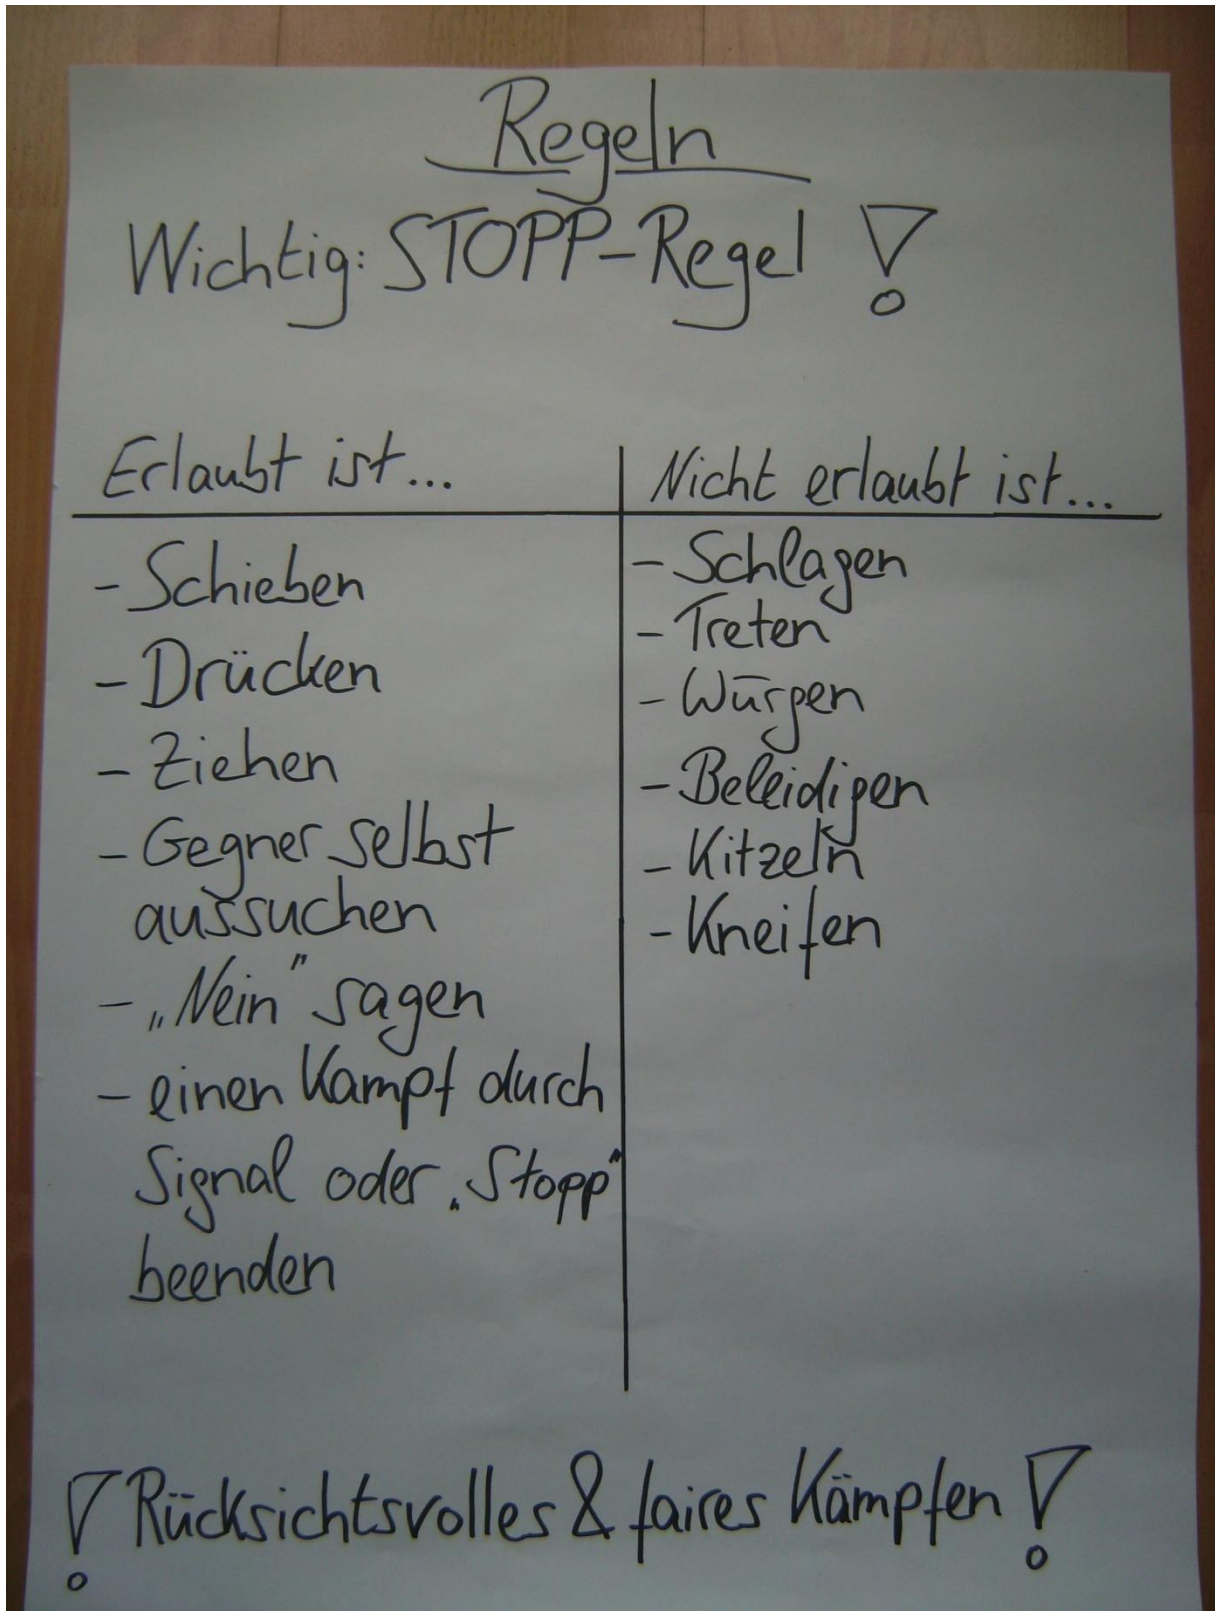 Regeln
Wichtig: STOPP-Regel !
Erlaubt ist...
- Schieben
- Drücken
- Ziehen
- Gegner selbst
aussuchen
- „Nein” sagen
- einen Kampf durch
Signal oder „Stopp”
beenden
Nicht erlaubt ist...
- Schlagen
- Treten
- Würgen
- Beleidigen
- Kitzeln
- Kneifen
! Rücksichtsvolles & faires Kämpfen !